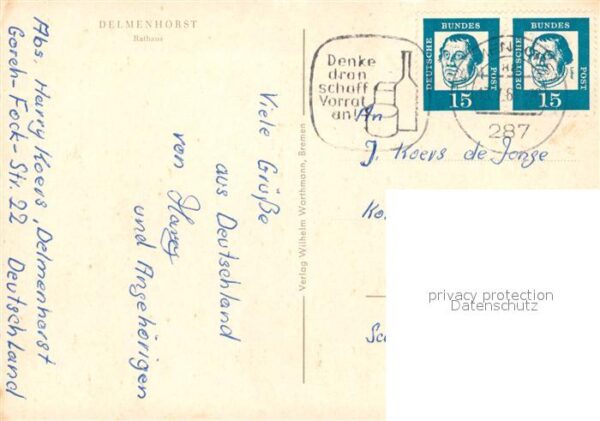 DELMENHORST
Rathaus
Abs. Harry Koers, Delmenhorst
Goreh-Fock-Str. 22 Deutschland
Viele Grüße
aus Deutschland
von Harry
und Angehörigen
Verlag Wilhelm Worthmann, Bremen
Denke
dran
schaff
Vorrat
an!
287
DEUTSCHE BUNDES POST
15
DEUTSCHE BUNDES POST
15
An
J. Koers de Jonge
Ko
Sc
privacy protection
Datenschutz